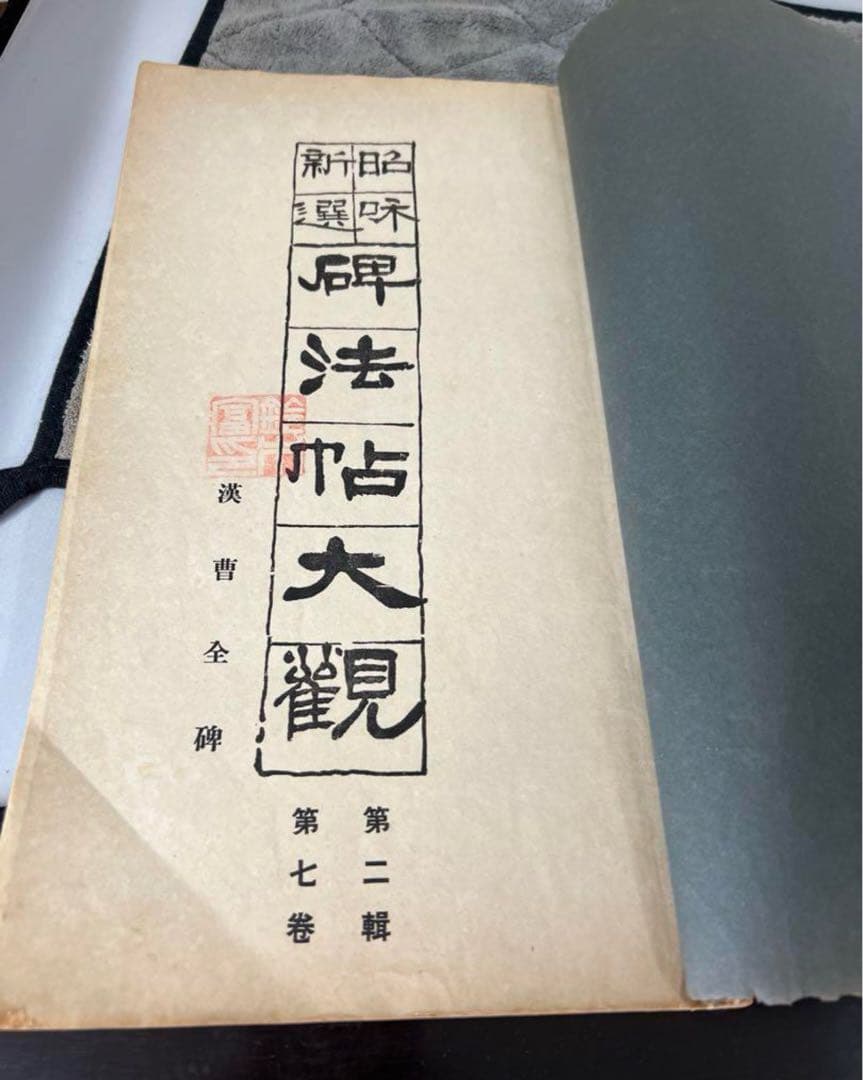 昭咊
新選
碑法帖大觀
第二輯
第七卷
漢曹全碑